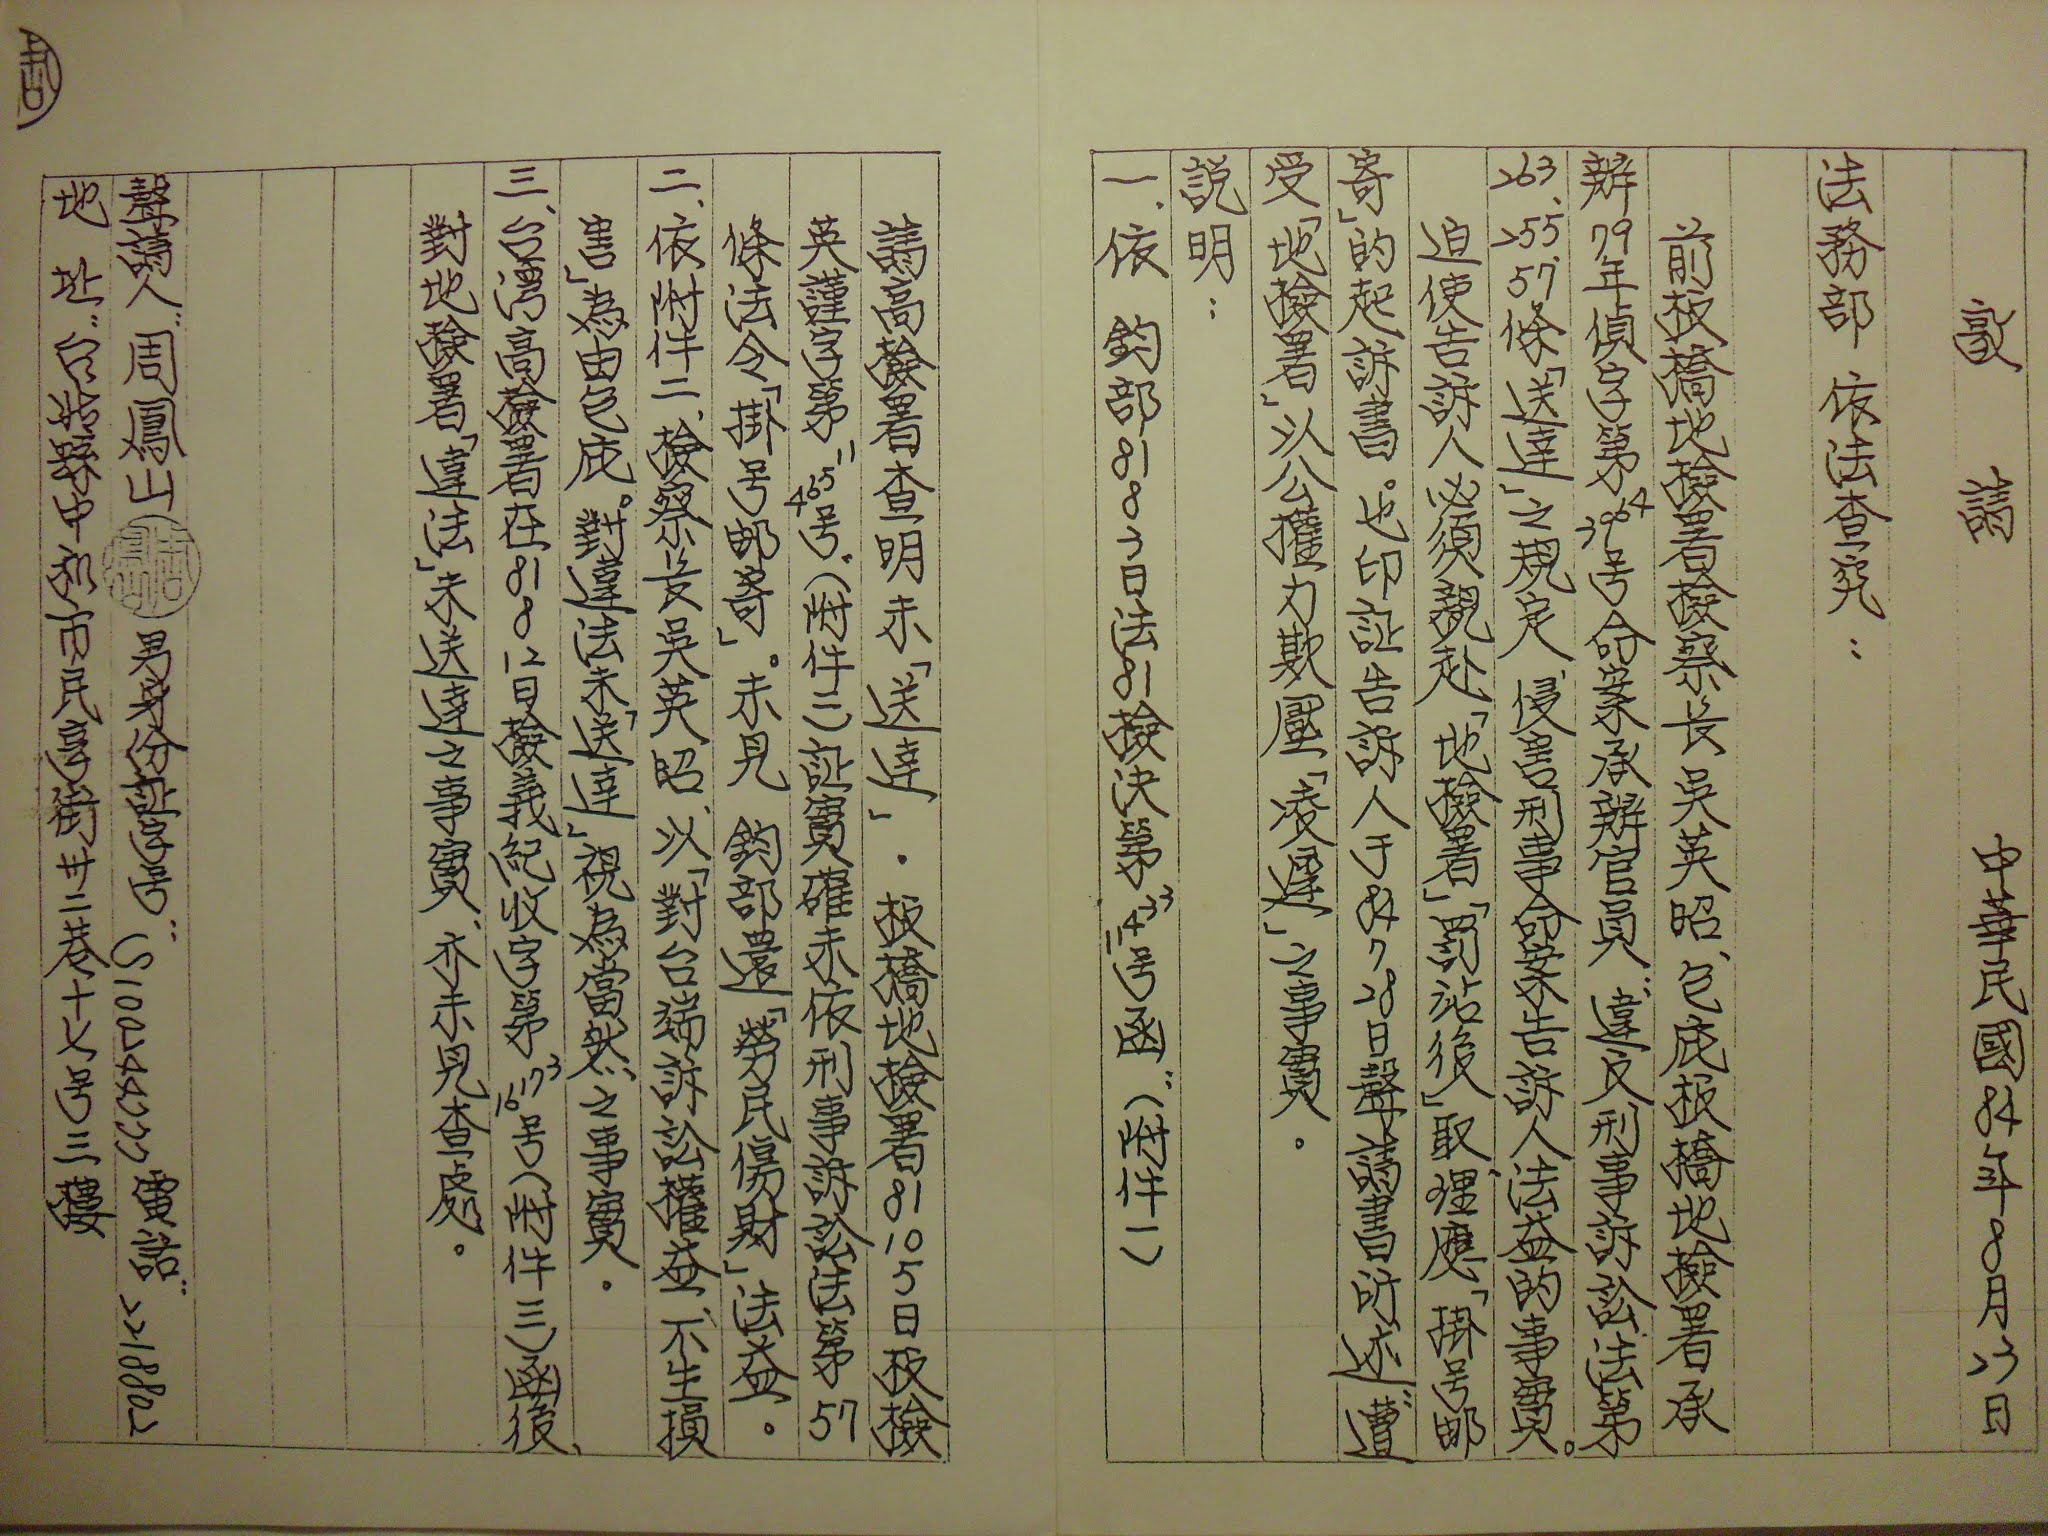 敬請　中華民國82年8月23日
法務部 依法查究：
前板橋地檢署檢察長吳英昭、包庇板橋地檢署承
辦79年偵字第3964号命案承辦官員"違反刑事訴訟法第
263、255、57條「送達」之規定、侵害刑事命案告訴人法益的事實。
迫使告訴人必須親赴「地檢署」「罰站後」取、理應「掛号郵
寄」的起訴書。也印証告訴人于82 7 28日聲請書所述"遭
受「地檢署」以公權力欺壓「凌遲」之事實．
説明：
一、依 鈞部81 8 3日法81檢決第11433号函"(附件一)
請高檢署查明未「送達」．板橋地檢署81 10 5日板檢
英謹字第46511号"(附件二)証實確未依刑事訴訟法第57
條法令「掛号郵寄」。未見 鈞部還「勞民傷財」法益。
二、依附件二、檢察長吳英昭、以「對台端訴訟權益、不生損
害」為由包庇。對違法未「送達」視為當然"之事實．
三、台灣高檢署在81 8 12日檢義紀收字第16173号(附件三)函後、
對地檢署「違法」未送達之事實、亦未見查處。
聲請人"周鳳山 男身份証字号"(S102142233 電話"2218802
地　址"台北縣中和市民享街廿二巷十七号三樓